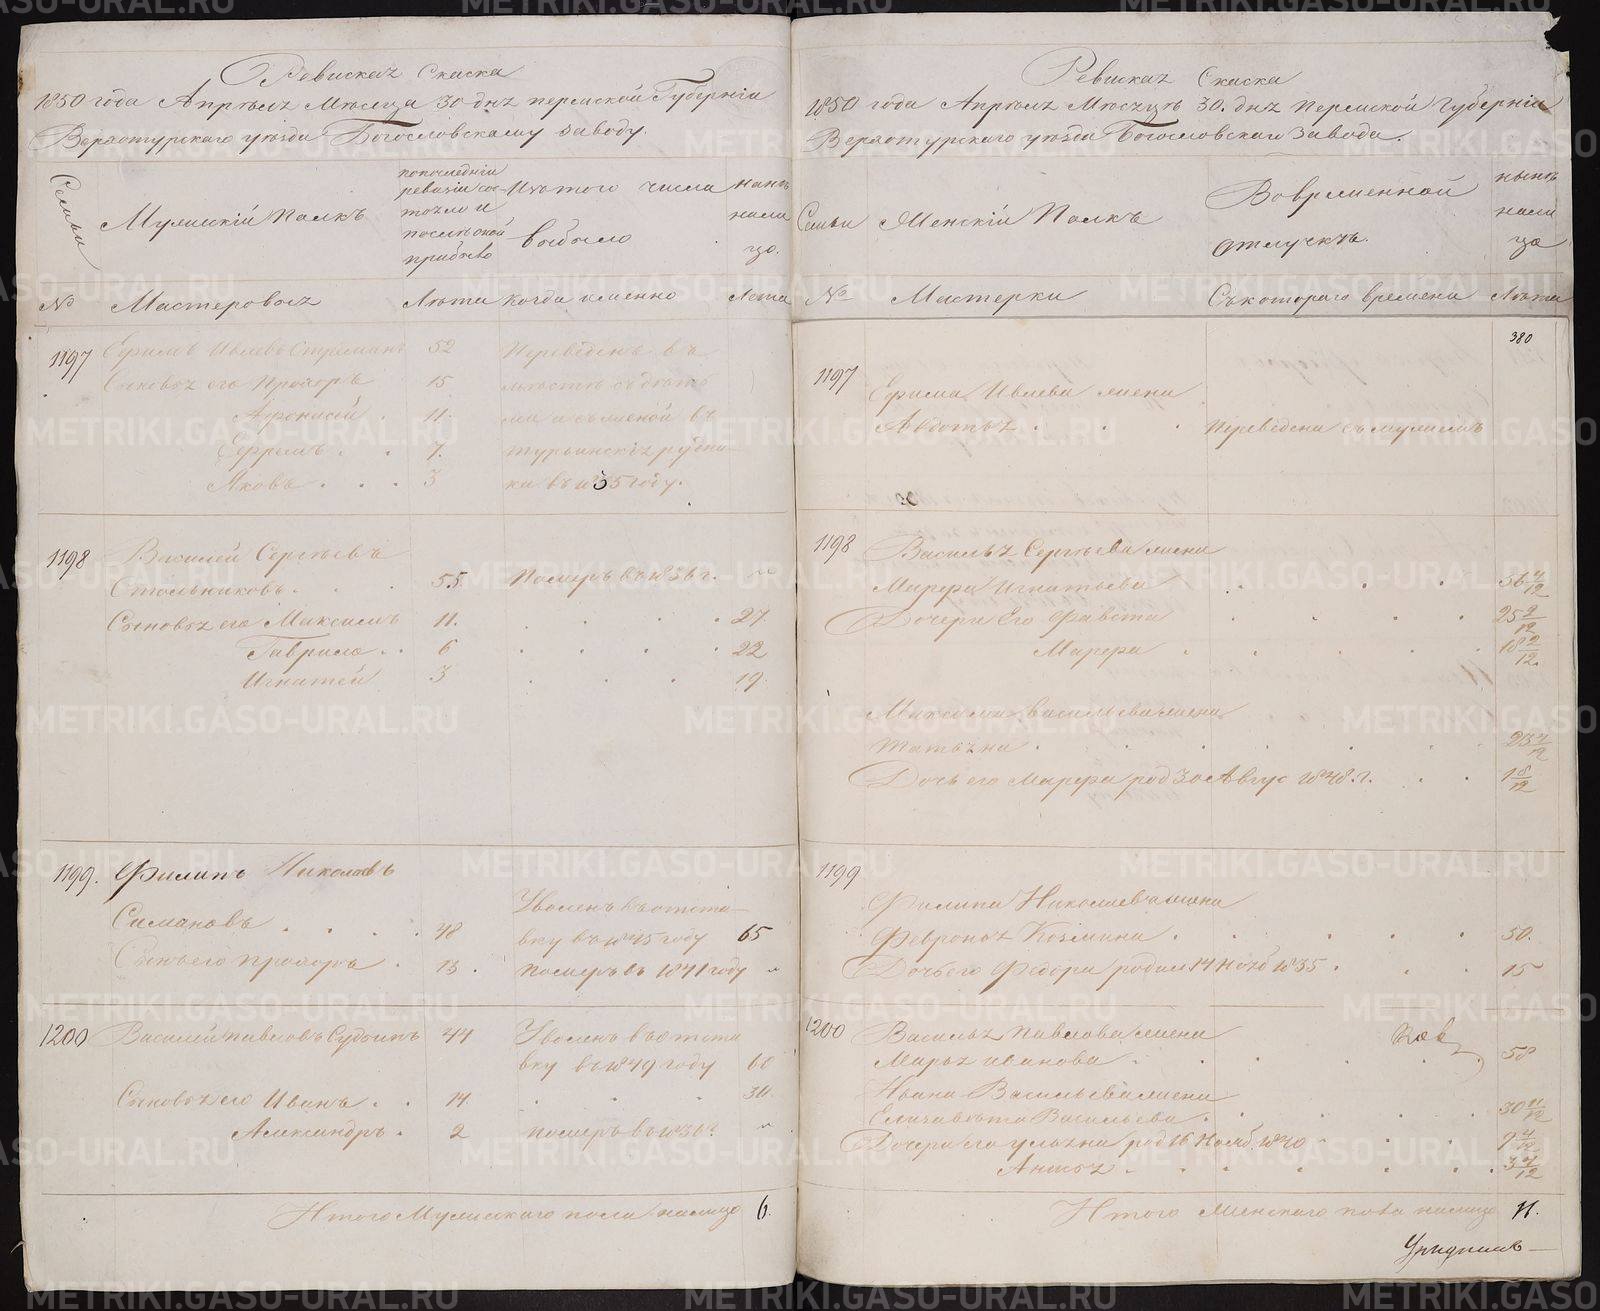 Ревиская Скаска
1850 года Апреля Месеца 30 дня пермской Губерніи
Верхотурскаго уезда Богословскому заводу.
Семьи
Мужискій Полкъ
попоследніи
ревизіи сос-
тояло и
послѣ оной
прибыво
Изтого числа
выбыло
нанъ
нали
цо.
№ Мастеровыя Лѣта когда именно Лѣта
1197 Ефимъ Ивлевъ 52 Переведенъ въ
Сыновья его Прохоръ 15
Афонасій 11. въ
Ефремъ 7. турьинскія рудни
Яковъ 3 ки въ 1835 году.
1198 Василей Сергѣевъ
Стольниковъ 55 Померъ въ 1836 г. "
Сыновья его Максимъ 11. 27.
Гаврило 6 22
Игнатей 3 19.
1199. Филипъ Николаевъ
Симановъ 48 Уволенъ въ отста-
вку въ 1845 году 65
Сынъ его Прохоръ 13. померъ въ 1841 году "
1200 Василей Павловъ 44 Уволенъ въ отста
вку въ 1849 году 60
Сыновья его Иванъ 14. 30.
Александръ 2 померъ въ "
Итого Мужискаго пола налицо 6.
Ревиская Скаска
1850 года Апреля Месяцъ 30. дня Пермской Губерніи
Верхотурскаго уезда Богословскаго Завода.
Семьи Женскій Полкъ
Вовременной
отлучкѣ.
нынѣ
нали
цо
№ Мастерки Съкотораго времени Лѣта
380
1197
Ефима Ивлева жена
Авдотья Переведена съ мужемъ
1198 Василья Сергѣева жена
Марфа Игнатьева 56 4/12
Дочери Его Фавста 25 2/12
Марфа 18 2/12.
Максима Васильева жена
Татьяна
Дочь его Марфа род 30 Авгус 1848. г. 1 8/12
1199
Филипа Николаева жена
Февронья Козмина 50.
Дочь его Федора родил 14 1835 15
1200 Василья Павлова жена
Марья Иванова 58
Ивана Васильева жена
Елизавѣта Васильева 30 11/12
Дочери его Ульяна род 16 Нояб 1840
Анна 3
Итого Женскаго пола налицо 11.